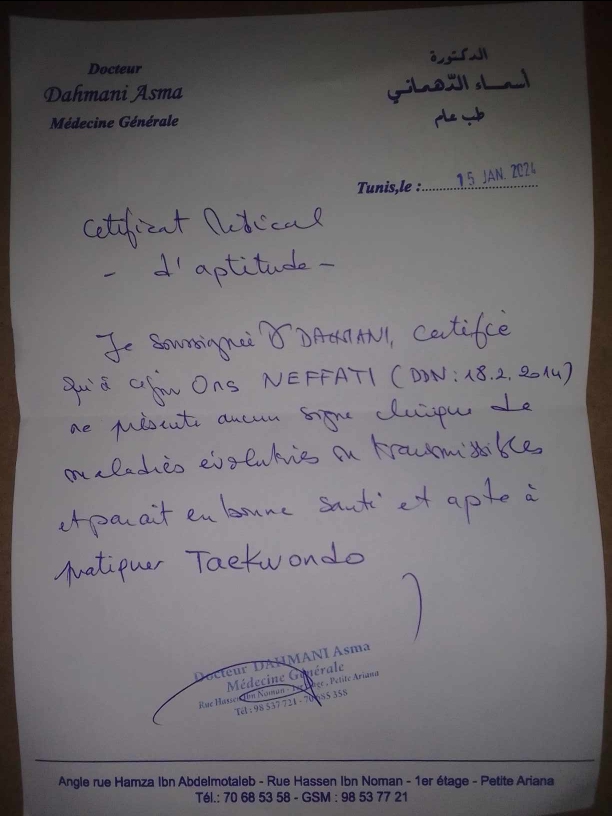 Docteur
Dahmani Asma
Médecine Générale
الدكتورة
أسماء الدّهماني
طب عام
Tunis,le : 15 JAN. 2024
Cetificat Médical
- d'aptitude -
Je soussignée Dr DAHMANI, certifie
qu'à ce jour Ons NEFFATI (DDN : 18.2.2014)
ne présente aucun signe clinique de
maladies évolutives ou transmissibles
et parait en bonne santé et apte à
pratiquer Taekwondo
Docteur DAHMANI Asma
Médecine Générale
Rue Hassen Ibn Noman - 1er étage, Petite Ariana
Tél : 98 537 721 - 70 685 358
Angle rue Hamza Ibn Abdelmotaleb - Rue Hassen Ibn Noman - 1er étage - Petite Ariana
Tél.: 70 68 53 58 - GSM : 98 53 77 21